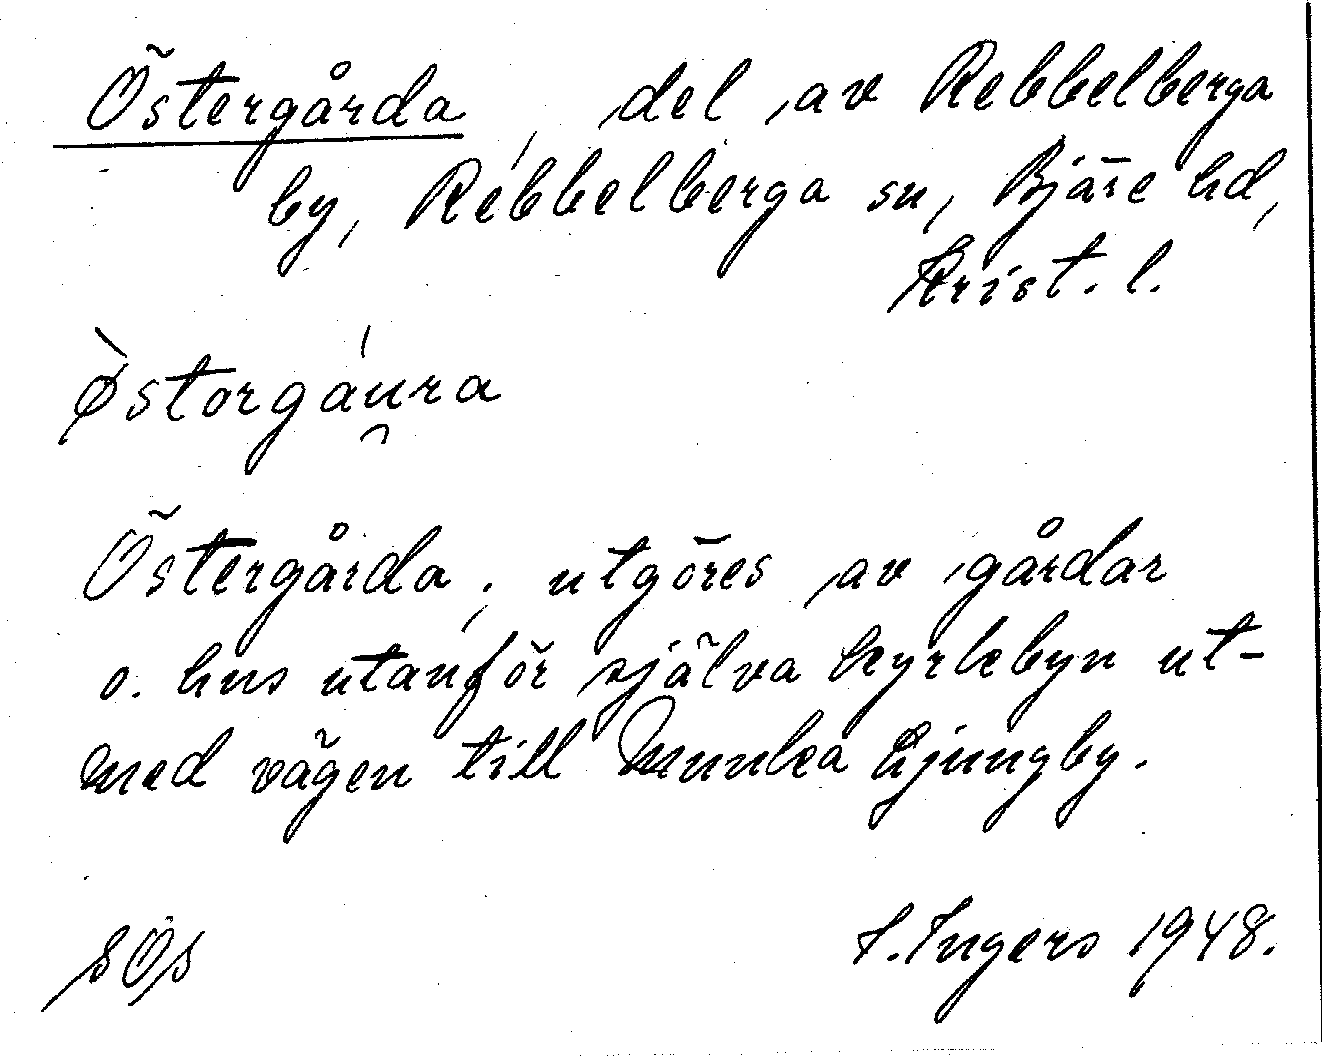 Östergårda, del av Rebbelberga
by, Rebbelberga sn, Bjäre hd,
Krist. l.
Østorgáu̯ra
Östergårda, utgöres av gårdar
o. hus utanför själva kyrkebyn ut-
med vägen till Munka Ljungby.
I. Ingers 1948.